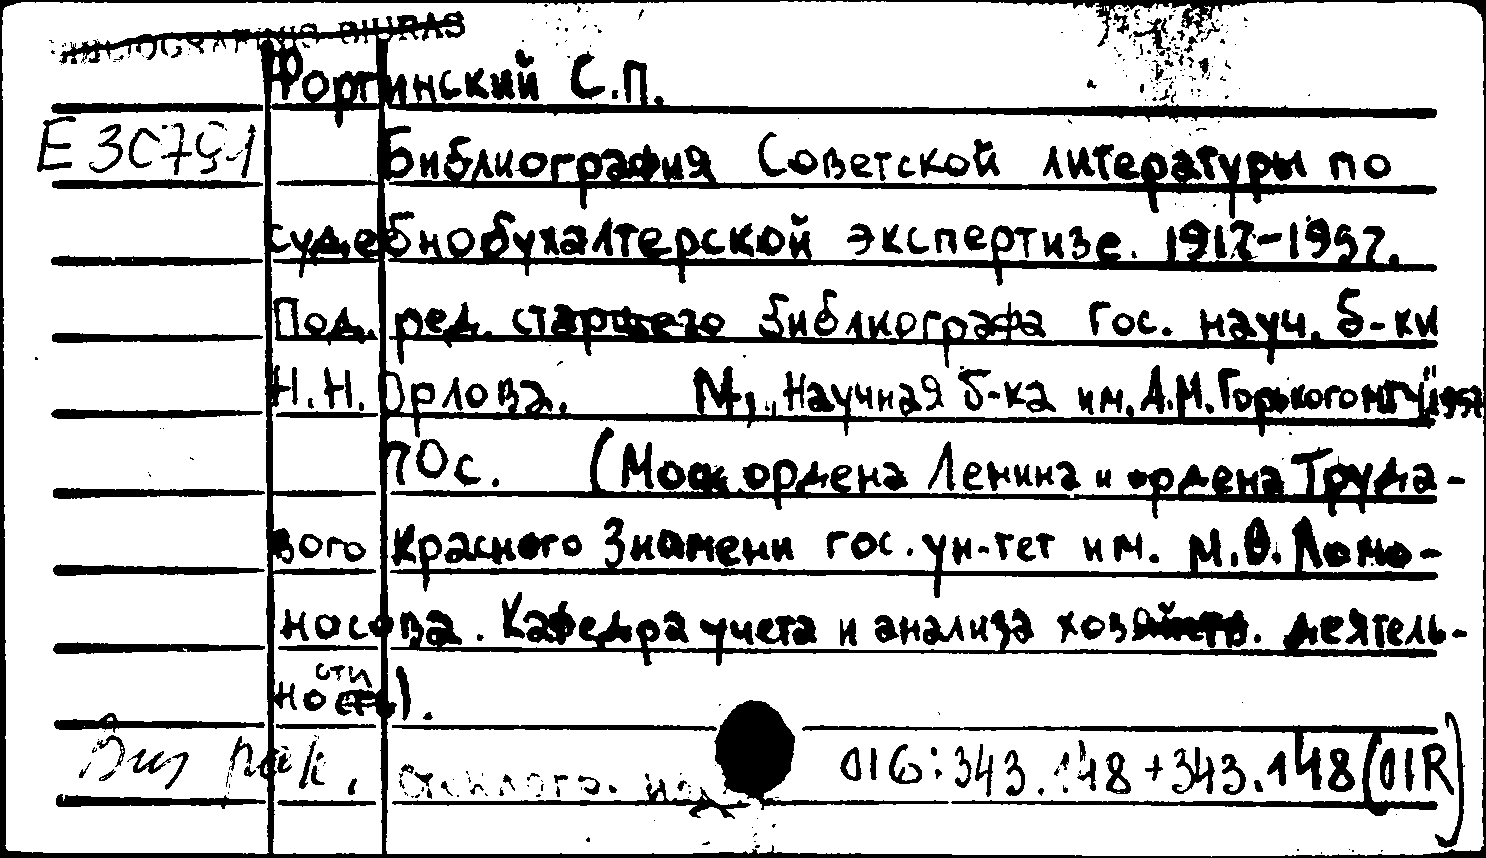 BIBLIOGRAFINIS BIURAS
Фортинский С.П.
E 30791 Библиография Советской литературы по
судебнобухалтерской экспертизе. 1917-1957.
Под. ред. старшего библиографа Гос. науч. б-ки
Н.Н. Орлова. М., „Научная б-ка им. А.М. Горького МГУ" 1957
70 с. (Моск. ордена Ленина и ордена Трудо-
вого Красного Знамени гос. ун-тет им. М.В. Ломо-
носова. Кафедра учета и анализа хозяйств. деятель-
ности).
016:343.148+343.148(01R)